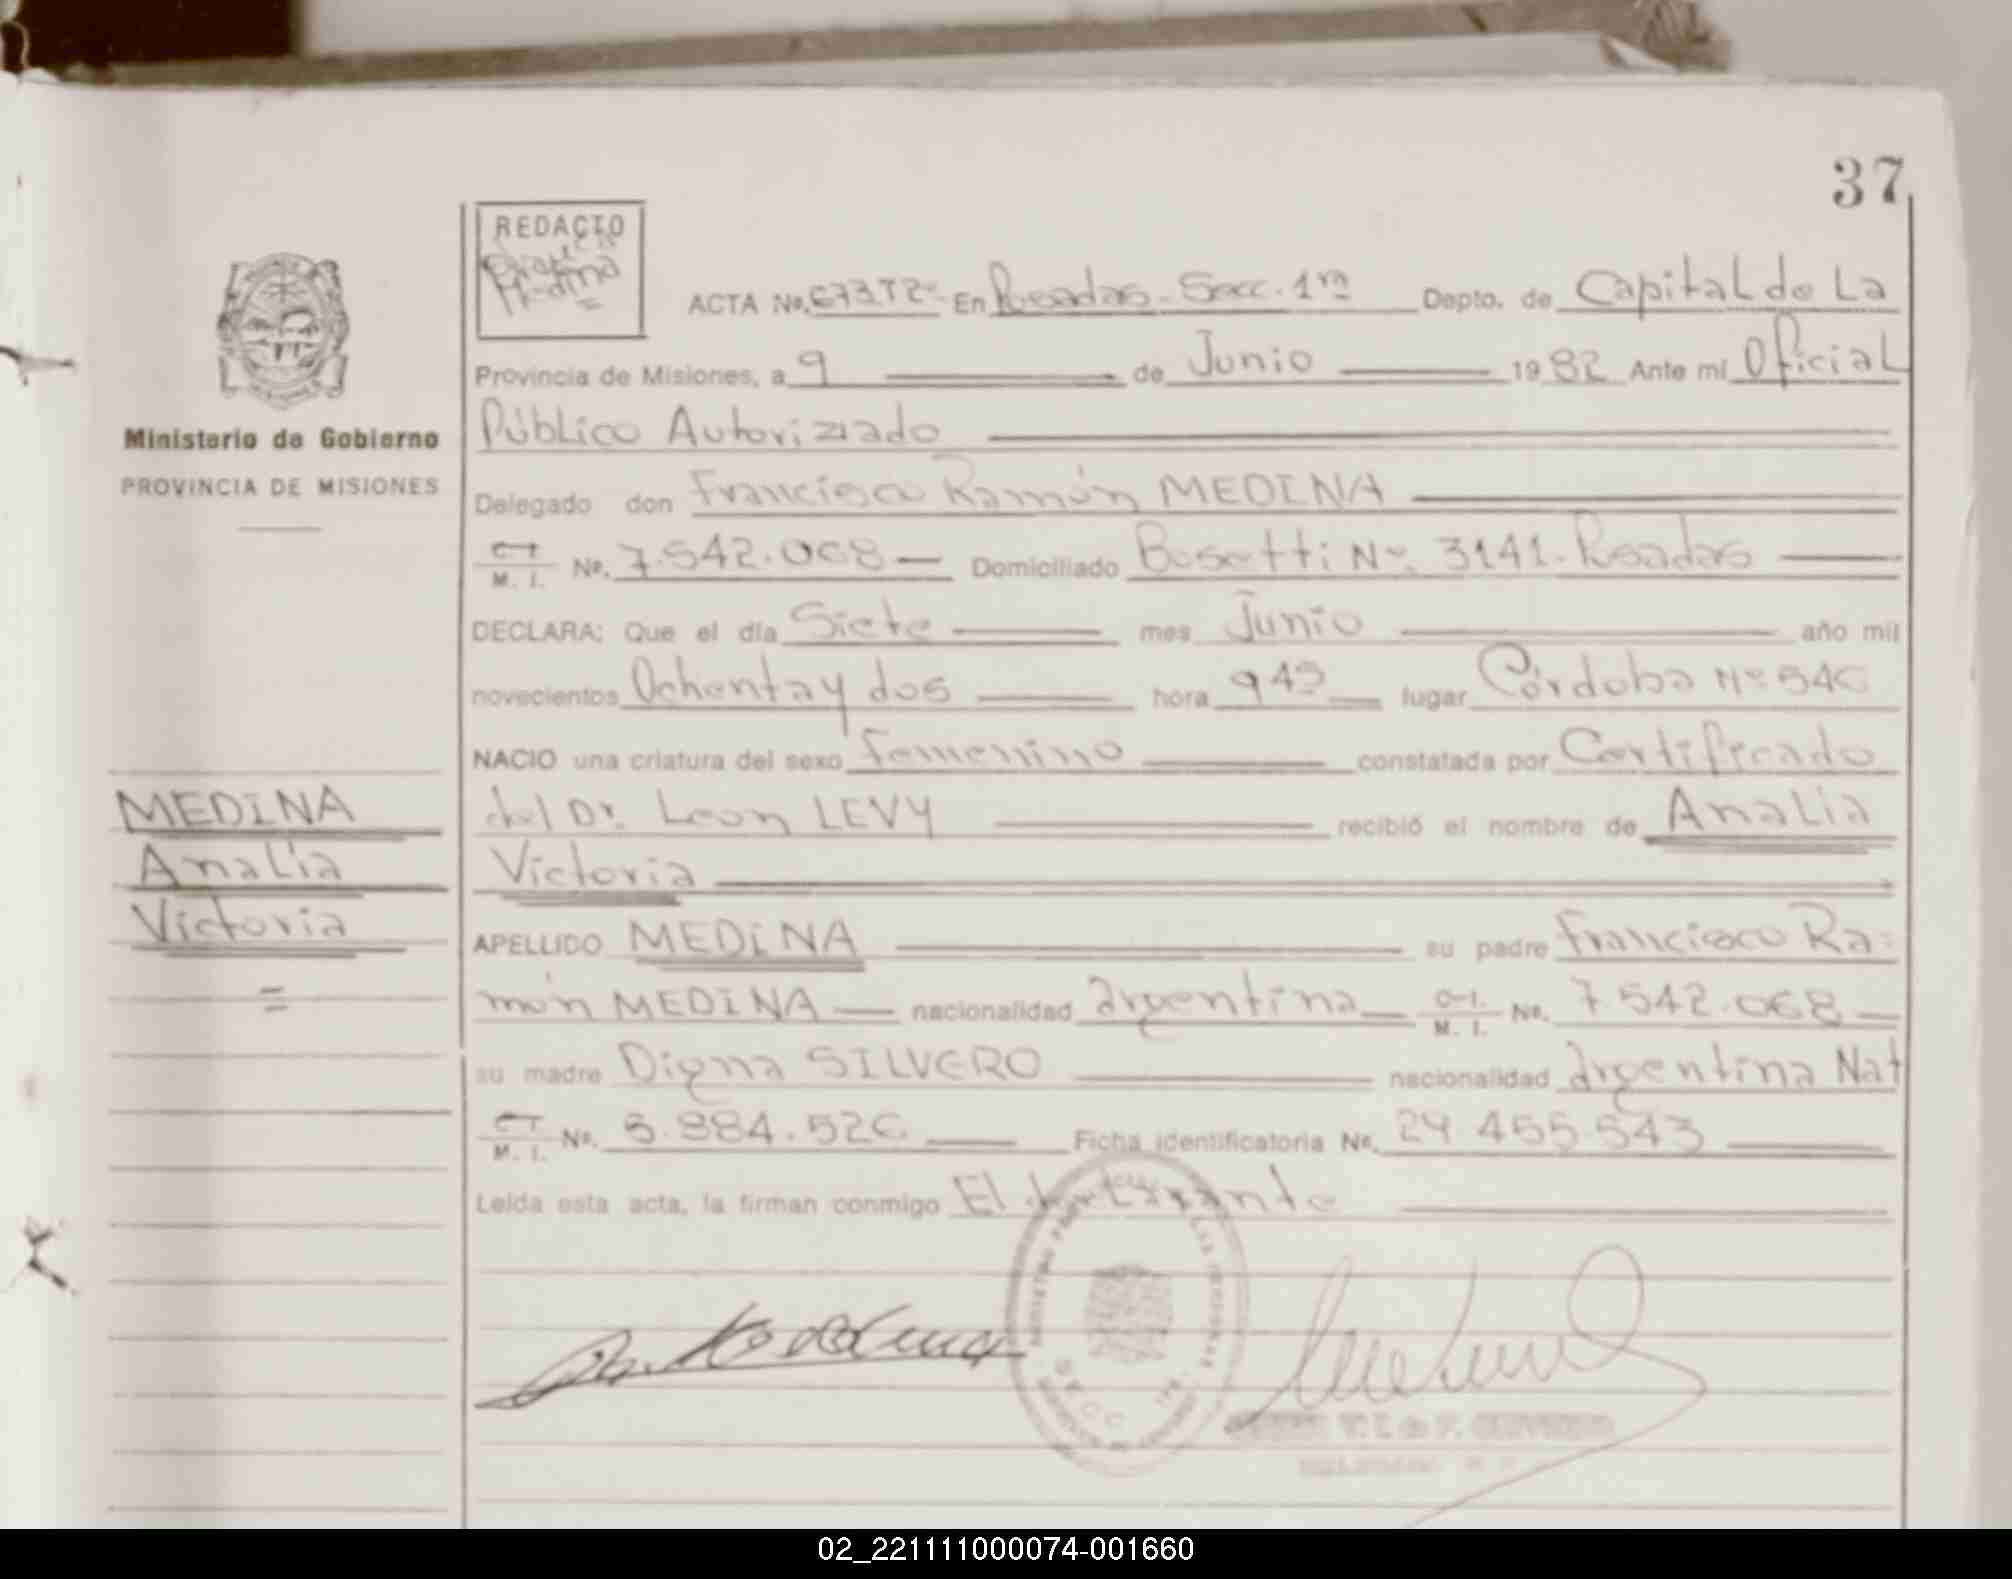 37
REDACTO
Medina
ACTA No. 673 T2º En Posadas - Secc. 1ra Depto. de Capital de La
Provincia de Misiones, a 9 de Junio 1982 Ante mi Oficial
Público Autorizado
Ministerio de Gobierno
PROVINCIA DE MISIONES
Delegado don Francisco Ramón MEDINA
C.I. M. I. No. 7.542.068 Domiciliado Bosetti Nº 3141. Posadas
DECLARA: Que el día Siete mes Junio año mil
novecientos Ochenta y dos hora 9 45 lugar Córdoba Nº 546
NACIO una criatura del sexo femenino constatada por Certificado
del Dr. Leon LEVY recibió el nombre de Analia
Victoria
MEDINA
Analia
Victoria
=
APELLIDO MEDINA su padre Francisco Ra=
món MEDINA nacionalidad argentina C.I. M. I. No. 7.542.068
su madre Digna SILVERO nacionalidad argentina Nat
C.I. M. I. No. 5.884.526 Ficha identificatoria No. 29.455.543
Leída esta acta, la firman conmigo El declarante
02_221111000074-001660